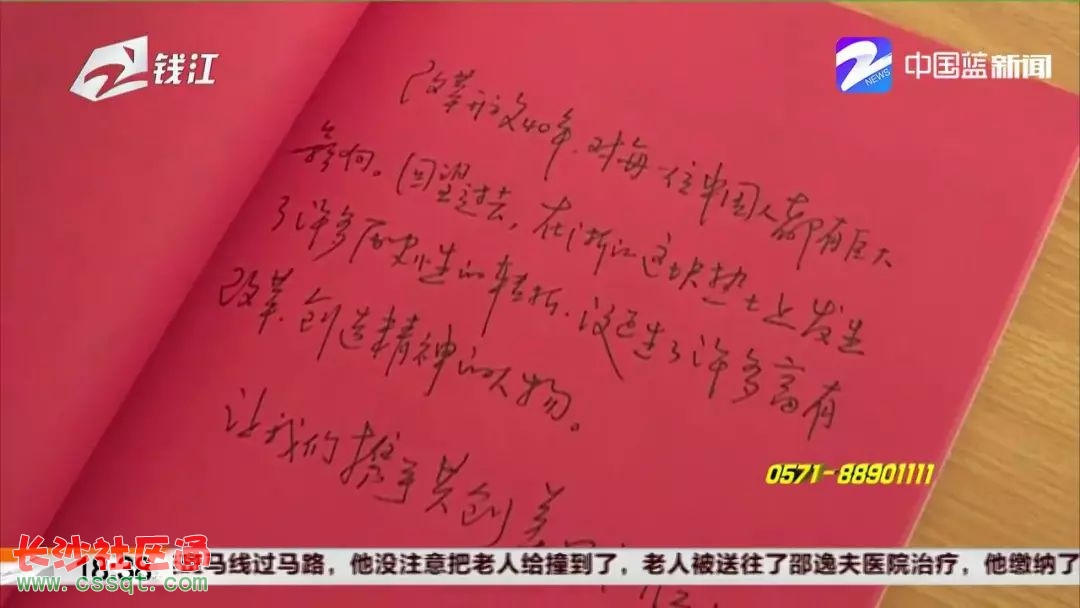 钱江
NEWS
中国蓝新闻
改革开放40年,对每一位中国人都有巨大
影响。回望过去,在浙江这块热土上发生
了许多历史性的转折,这诞生了许多富有
改革、创造精神的人物。
让我们携手共创美
0571-88901111
长沙社区通
www.cssqt.com
18:38
马线过马路,他没注意把老人给撞到了,老人被送往了邵逸夫医院治疗,他缴纳了